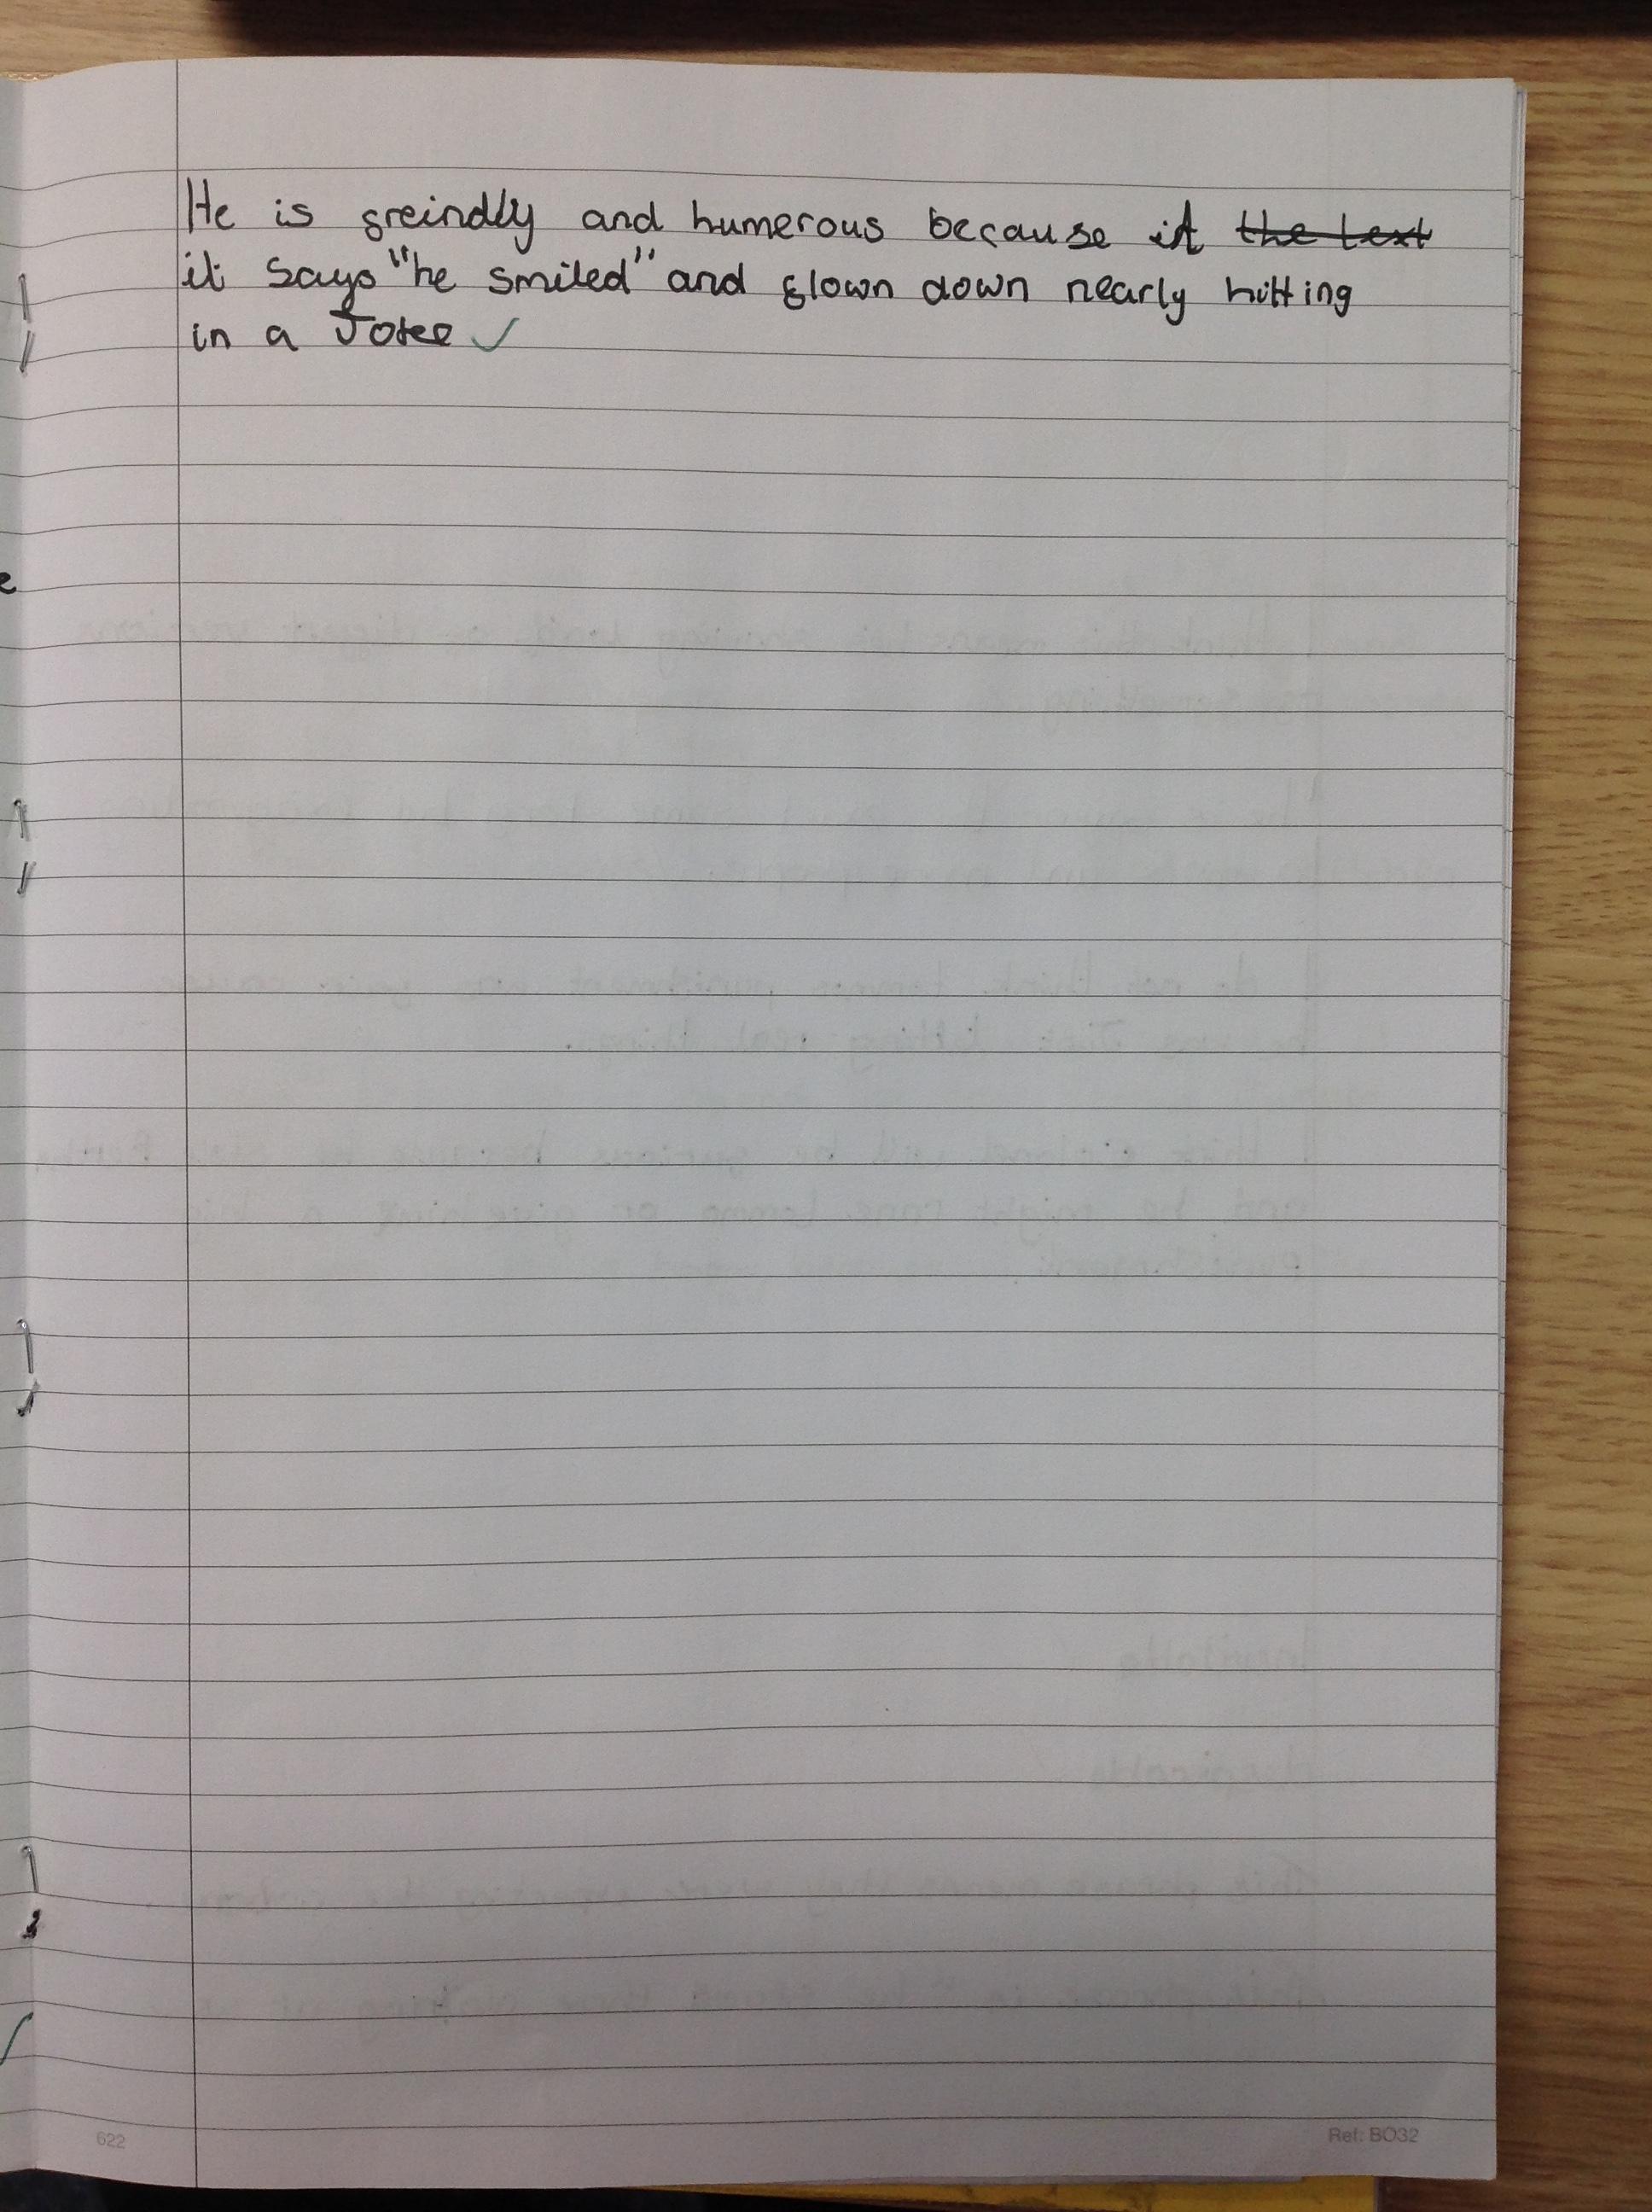 He is freindly and humerous because it the text
it says "he smiled" and flown down nearly hitting
in a Joke
622
Ref: BO32